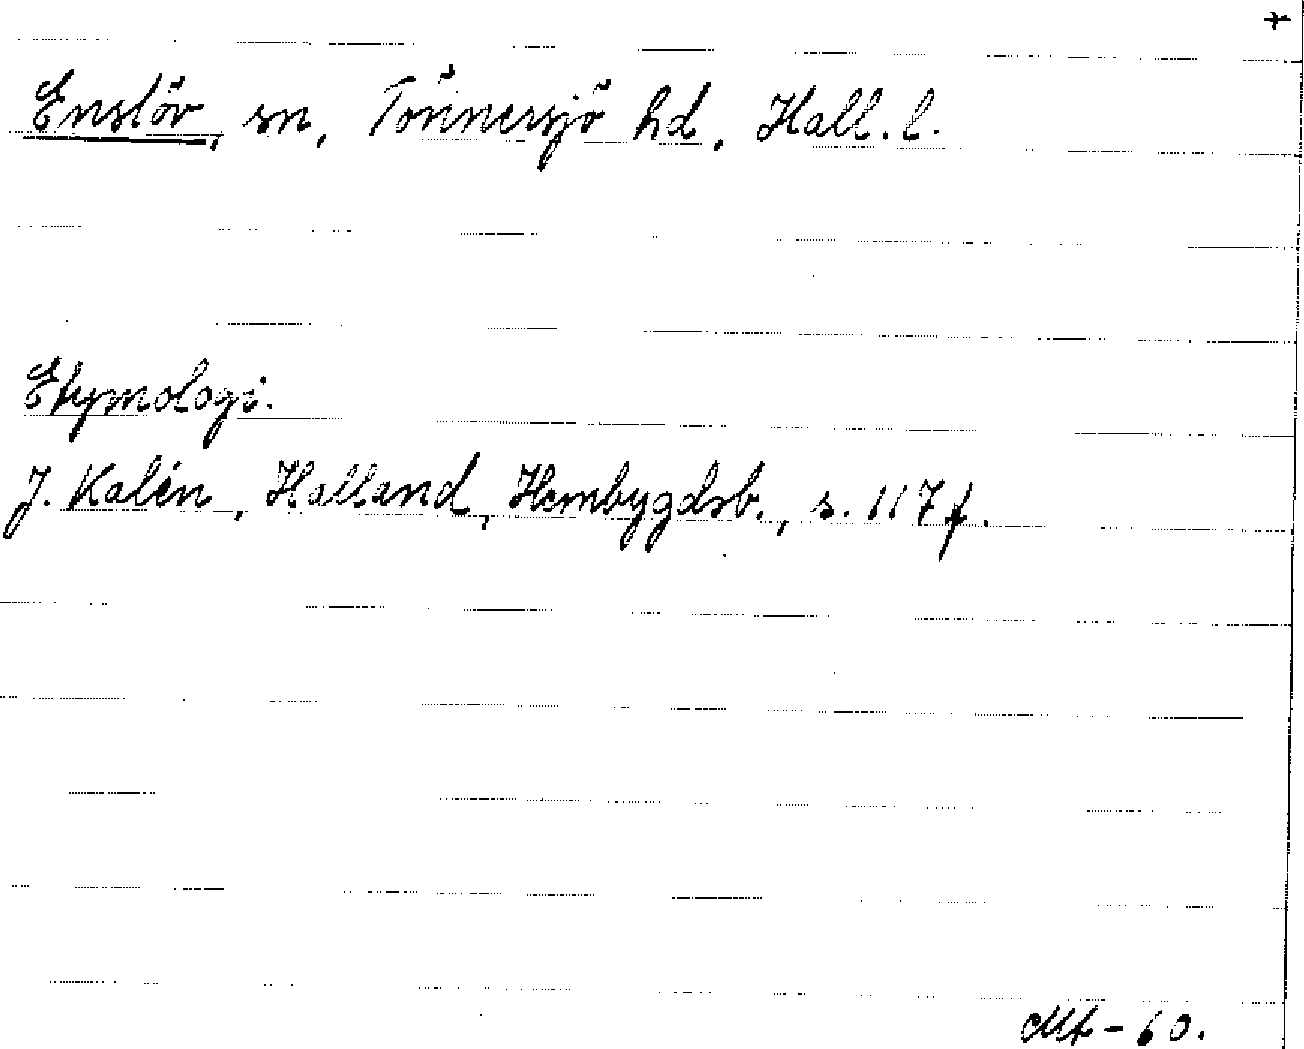 Enslöv, sn, Tönnersjö hd, Hall. l.
Etymologi.
J. Kalén, Halland, Hembygdsb., s. 117 f.
Mt-60.